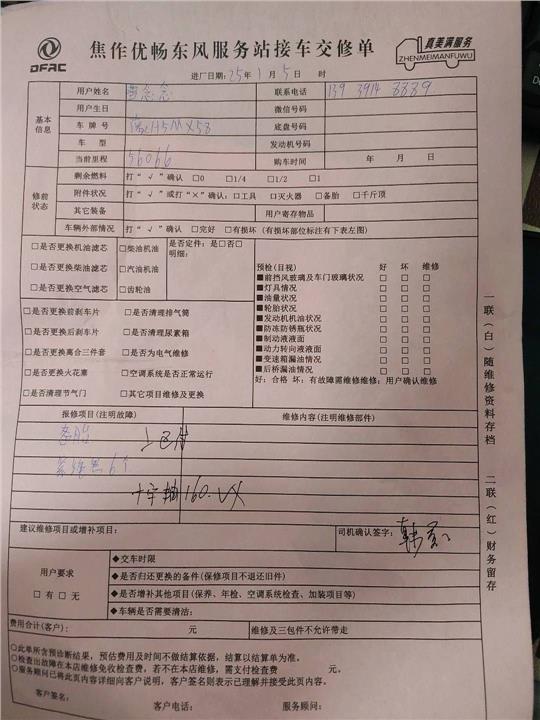 DFAC
焦作优畅东风服务站接车交修单
真美满服务
ZHENMEIMANFUWU
进厂日期:25年1月5日 时
基本信息
用户姓名
联系电话 139 3914 8889
用户生日
微信号码
车牌号 H5MX58
底盘号码
车型
发动机号码
当前里程 56066
购车时间 年 月 日
修前状态
剩余燃料 打“√”确认 □0 □1/4 □1/2 □1
附件状况 打“√”或打“×”确认:□工具 □灭火器 □备胎 □千斤顶
其它装备
用户寄存物品
车辆外部情况 打“√”确认 □完好 □有损坏(有损坏部位标注有下表左图)
□是否更换机油滤芯 □柴油机油
□是否更换柴油滤芯 □汽油机油
□是否更换空气滤芯 □齿轮油
是否定件:是□否□
明细:
□是否更换前刹车片 □是否清理排气筒
□是否更换后刹车片 □是否清理尿素箱
□是否更换离合三件套 □是否为电气维修
□是否更换火花塞 □空调系统是否正常运行
□是否清理节气门 □其它项目维修及更换
预检(目视) 好 坏 维修
■前挡风玻璃及车门玻璃状况 □ □ □
■灯具情况 □ □ □
■油量状况 □ □ □
■轮胎状况 □ □ □
■发动机机油状况 □ □ □
■防冻防锈瓶状况 □ □ □
■制动液液面 □ □ □
■动力转向液液面 □ □ □
■变速箱漏油情况 □ □ □
■后桥漏油情况 □ □ □
好:合格 坏:有故障需维修维修:用户确认维修
报修项目(注明故障)
维修内容(注明维修部件)
十字轴 160.
建议维修项目或增补项目:
司机确认签字:
用户要求
□有□无
◆交车时限
◆是否归还更换的备件(保修项目不退还旧件)
◆是否增补其他项目(保养、年检、空调系统检查、加装项目等)
◆车辆是否需要清洁:
费用合计(客户): 元
维修及三包件不允许带走
○此单所含预诊断结果,预估费用及时间不做结算依据,结算以结算单为准。
○检查出故障在本店维修免收检查费,若不在本店维修,需支付检查费 元。
○服务顾问已将此页内容详细向客户说明,客户签名则表示已理解并接受此页内容。
客户签名:
客户电话:
服务顾问:
一联(白)随维修资料存档
二联(红)财务留存